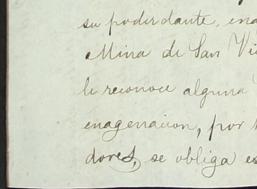 su poderdante, ena
Mina de San Vi
le reconoce alguna
enagenacion, por
dores, se obliga es